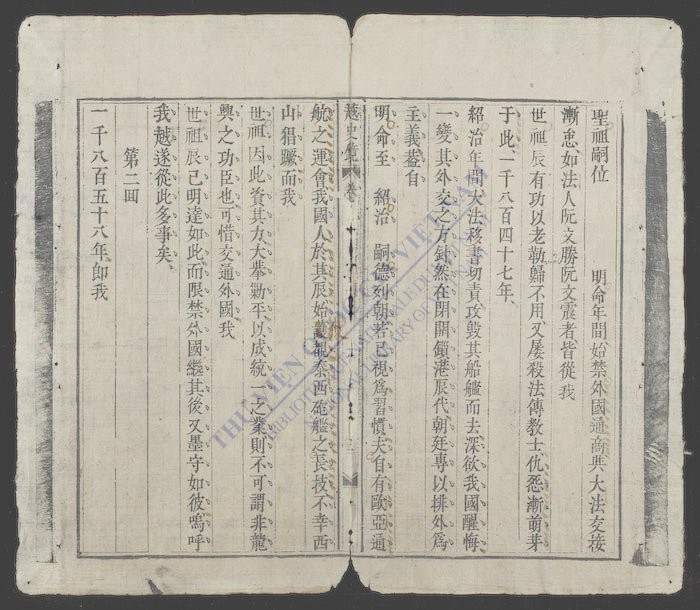 聖祖嗣位 明命年間始禁外國通商與大法交接
漸怠如法人阮文勝阮文震者皆從我
世祖辰有功以老勒歸不用又屢殺法傳教士仇怨漸萌芽
于此一千八百四十七年
紹治年間大法移書切責攻毀其船艦而去深欲我國醒悔
一變其外交之方針然在閉關鎖港辰代朝廷專以排外爲
主義蓋自
明命至 紹治 嗣德列朝若已視爲習慣夫自有歐亞通
越史 卷 三
航之運會我國人於其辰始護覩泰西砲艦之長技不幸西
山猖獗而我
世祖因此資其力大拳勦平以成統一之業則不可謂非龍
興之功臣也可惜交通外國我
世祖辰已明達如此而限禁外國繼其後又墨守如彼嗚呼
我越遂從此多事矣
第二回
一千八百五十八年即我
THƯ VIỆN QUỐC GIA VIỆT NAM
BIBLIOTHÈQUE NATIONALE DU VIETNAM
NATIONAL LIBRARY OF VIETNAM